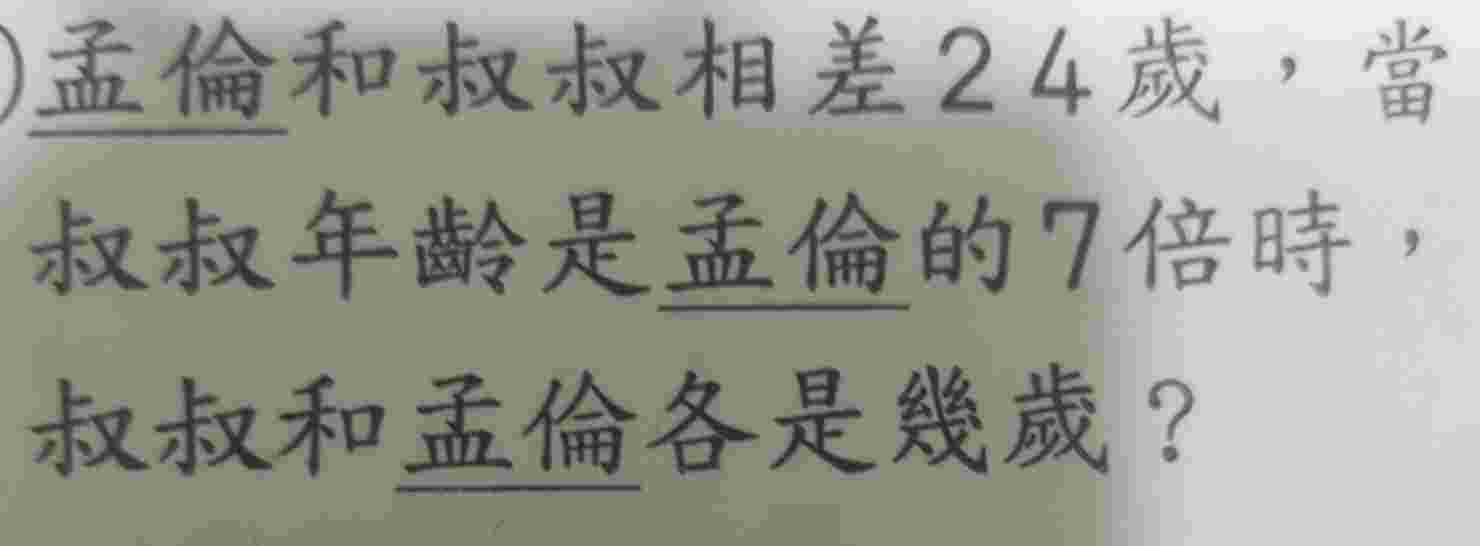 )孟倫和叔叔相差24歲,當
叔叔年齡是孟倫的7倍時,
叔叔和孟倫各是幾歲?